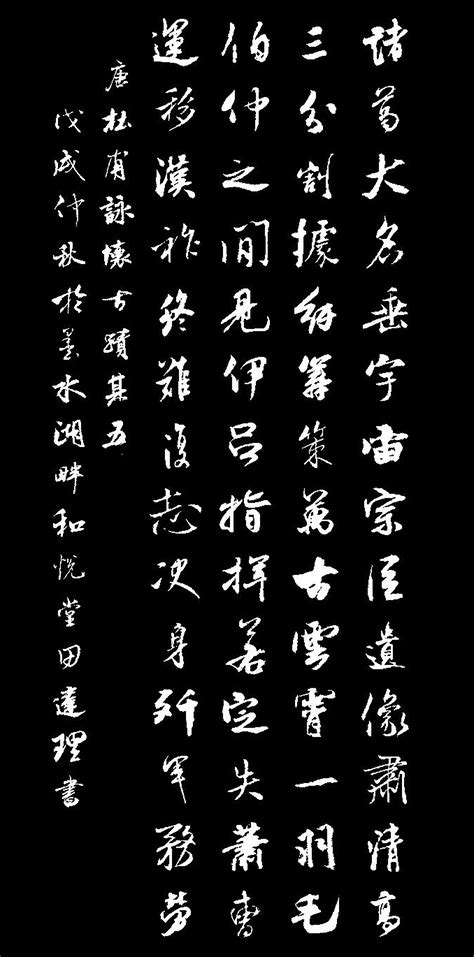 諸葛大名垂宇宙宗臣遺像肅清高
三分割據紆籌策萬古雲霄一羽毛
伯仲之間見伊呂指揮若定失蕭曹
運移漢祚終難復志决身歼軍務勞
唐杜甫詠懷古蹟其五
戊戌仲秋於墨水湖畔和悅堂田達理書